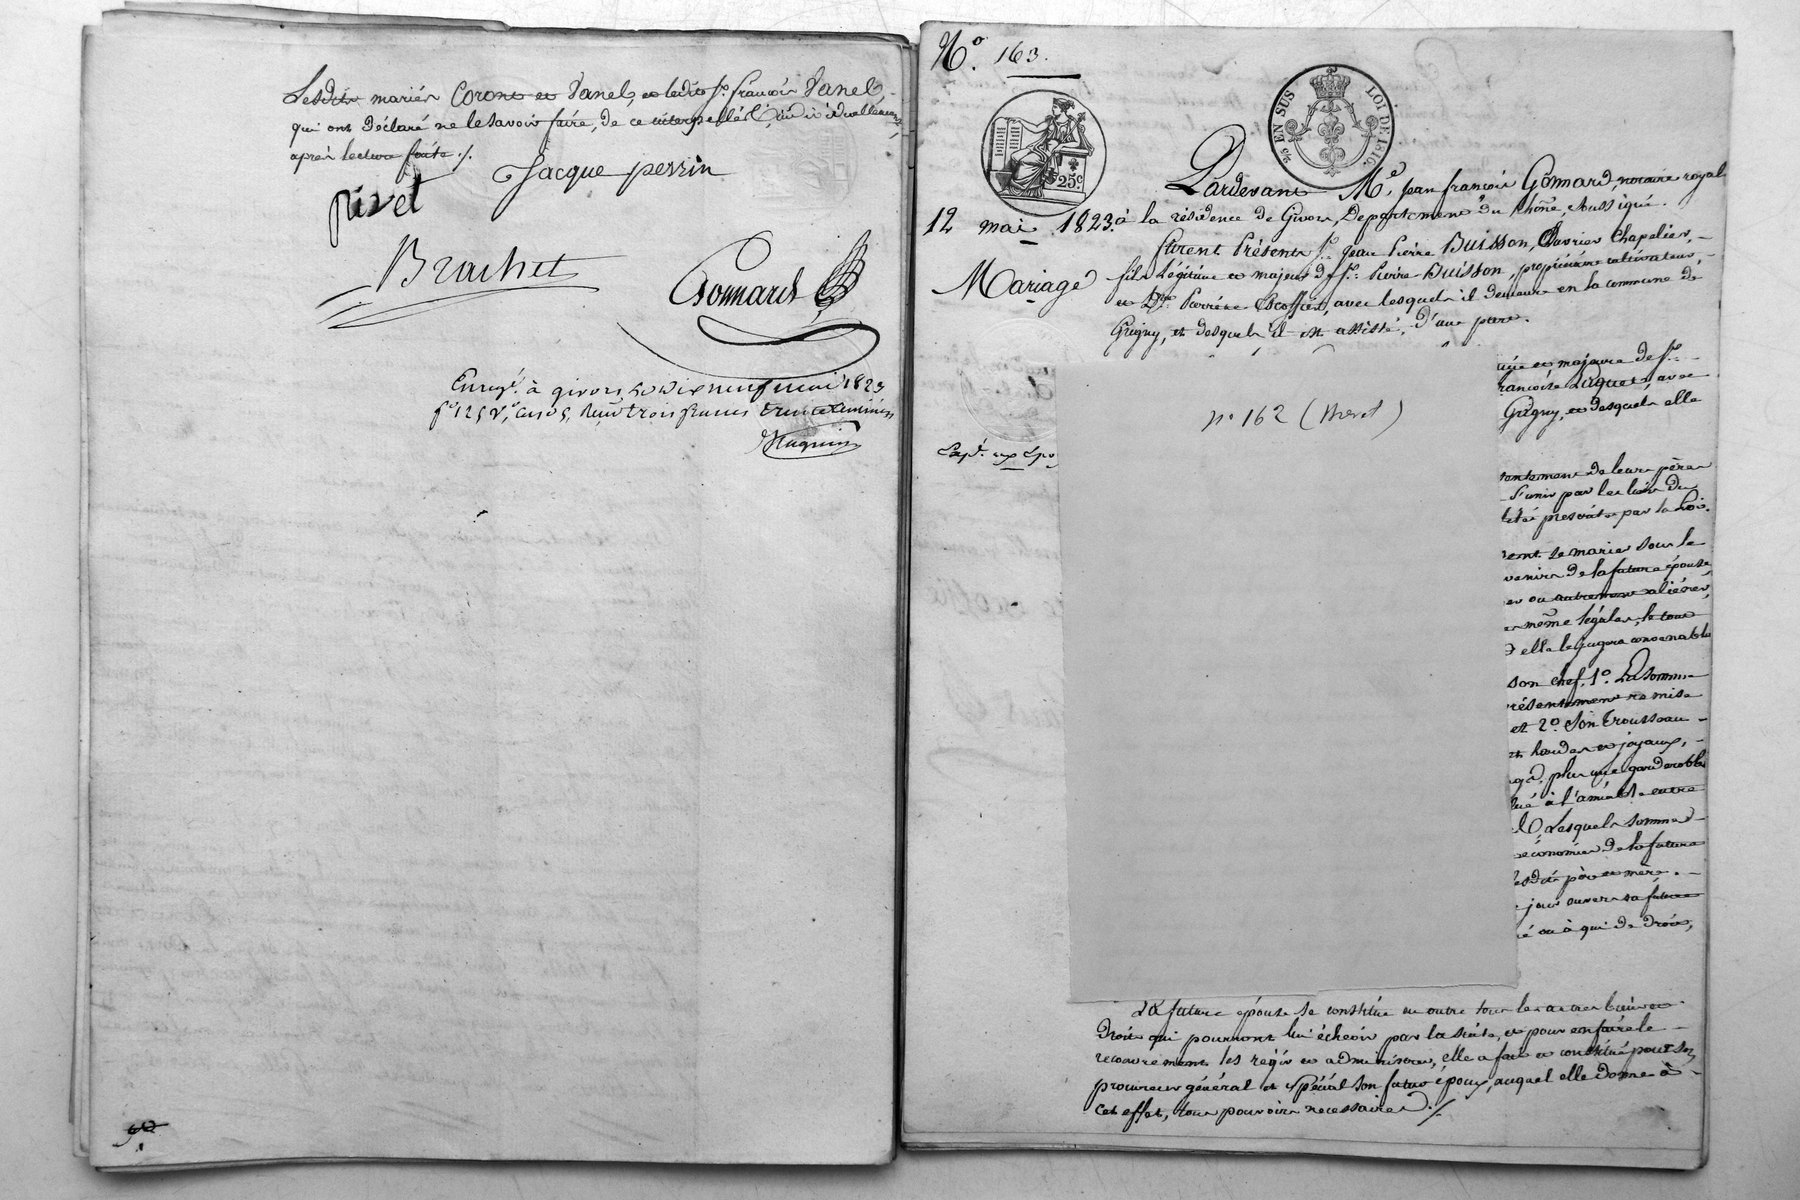 Lesdits mariés Coront et Vanel, et ledit Sr. françois Vanel
qui ont déclaré ne le savoir faire, de ce interpellés individuellement,
après lecture faite ./.
Jacque perrin
pivet
Brachet
Gonnard
Enregé. à givors, le dix neuf mai 1823
fo 125 Vo, reçu trois francs trente centimes
No. 163.
25 EN SUS
LOI DE 1816.
25c
12 mai 1823.
Mariage
Pardevant Me. Jean françois Gonnard, notaire royal
à la résidence de Givors, Département du Rhône, soussigné.
furent Présents Sr. Jean Pierre Buisson, Ouvrier Chapelier,
fils légitime et majeur de Sr. Pierre Buisson, propriétaire cultivateur,
et De. Pierrette Escoffier, avec lesquels il demeure en la commune de
Grigny, et desquels il est assisté, d'une part.
no 162 (Brevet)
et majeure de Sr.
avec
Grigny, et desquels elle
Expd. aux Epo
de leurs pères
s'unir par les liens du
prescrite par la Loi.
se marier sous le
venir de la future épouse,
ou autrement aliéner,
même légales, le tout
elle le jugera convenable
son chef. 1o. La somme
remise
et 2o. Son Trousseau
hardes et joyaux,
plus une garderobe
à l'amiable entre
Lesquels somme
économies de la future
père et mère.
jour ouvers sa future
ou à qui de droit,
La future épouse se constitue en outre tous les autres biens et
droits qui pourront lui échéoir par la suite, et pour en faire le
recouvrement les régir et administrer, elle a fait et constitué pour son
procureur général et spécial son futur époux, auquel elle donne à
cet effet, tous pouvoirs nécessaires ./.